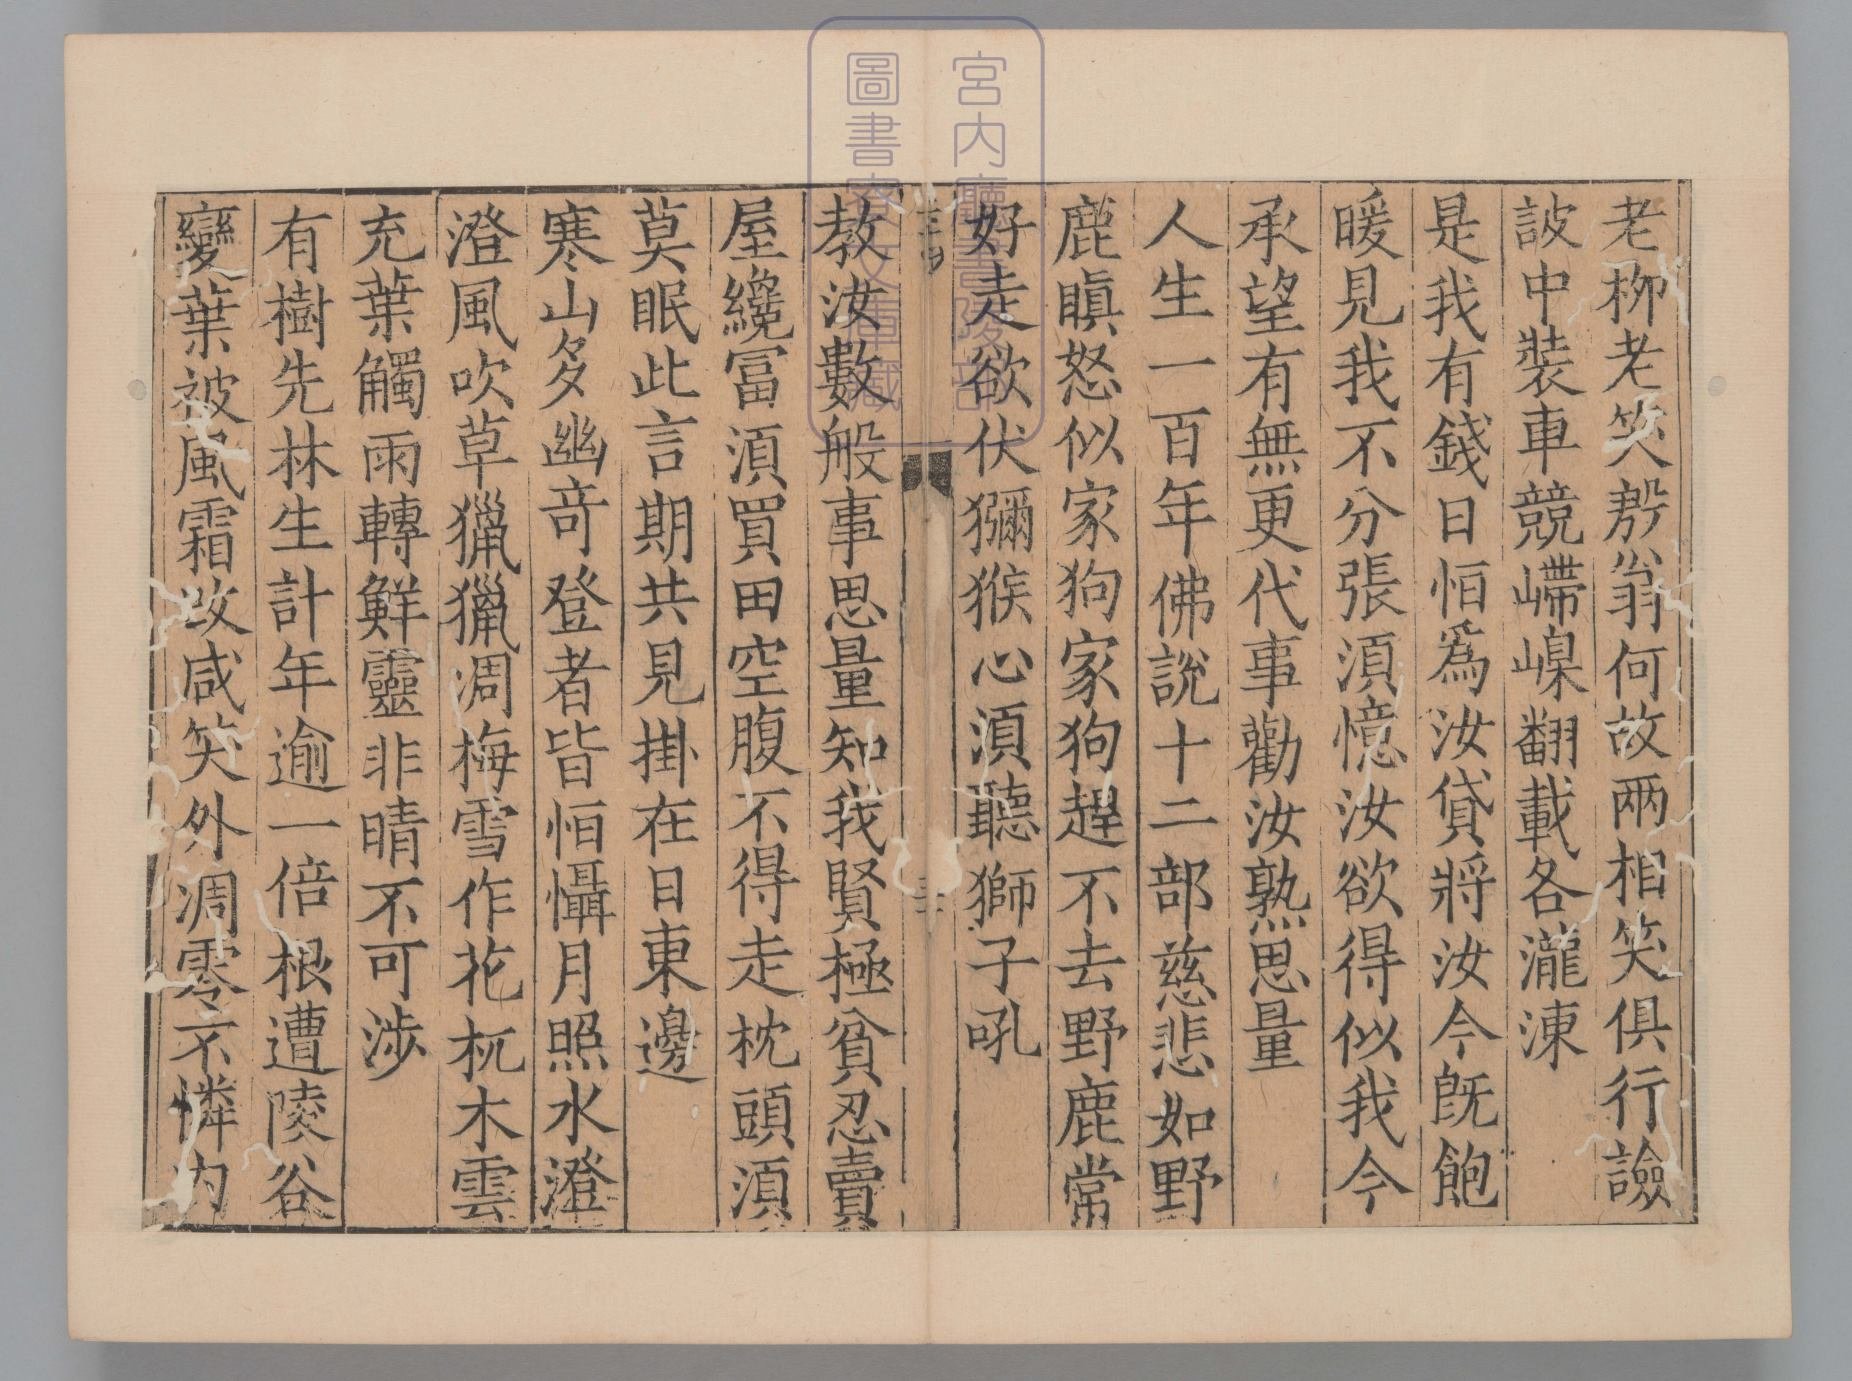 老柳老笑郄翁何故两相笑俱行譣
詖中裝車競㠿嵲翻載各瀧涷
是我有錢日恒爲汝貸將汝今旣飽
暖見我不分張湏憶汝欲得似我今
承望有無更代事勸汝熟思量
人生一百年佛說十二部慈悲如野
鹿瞋怒似家狗家狗趕不去野鹿常
好走欲伏獼猴心湏聽獅子吼
教汝數般事思量知我賢極貧忍賣
屋纔冨湏買田空腹不得走枕頭湏
莫眠此言期共見掛在日東邊
寒山多幽竒登者皆恒懾月照水澄
澄風吹草獵獵凋梅雪作花杌木雲
充葉觸雨轉鮮靈非晴不可渉
有樹先林生計年逾一倍根遭陵谷
變葉被風霜改咸笑外凋零不憐内
宮内廳書陵部
圖書寮文庫藏